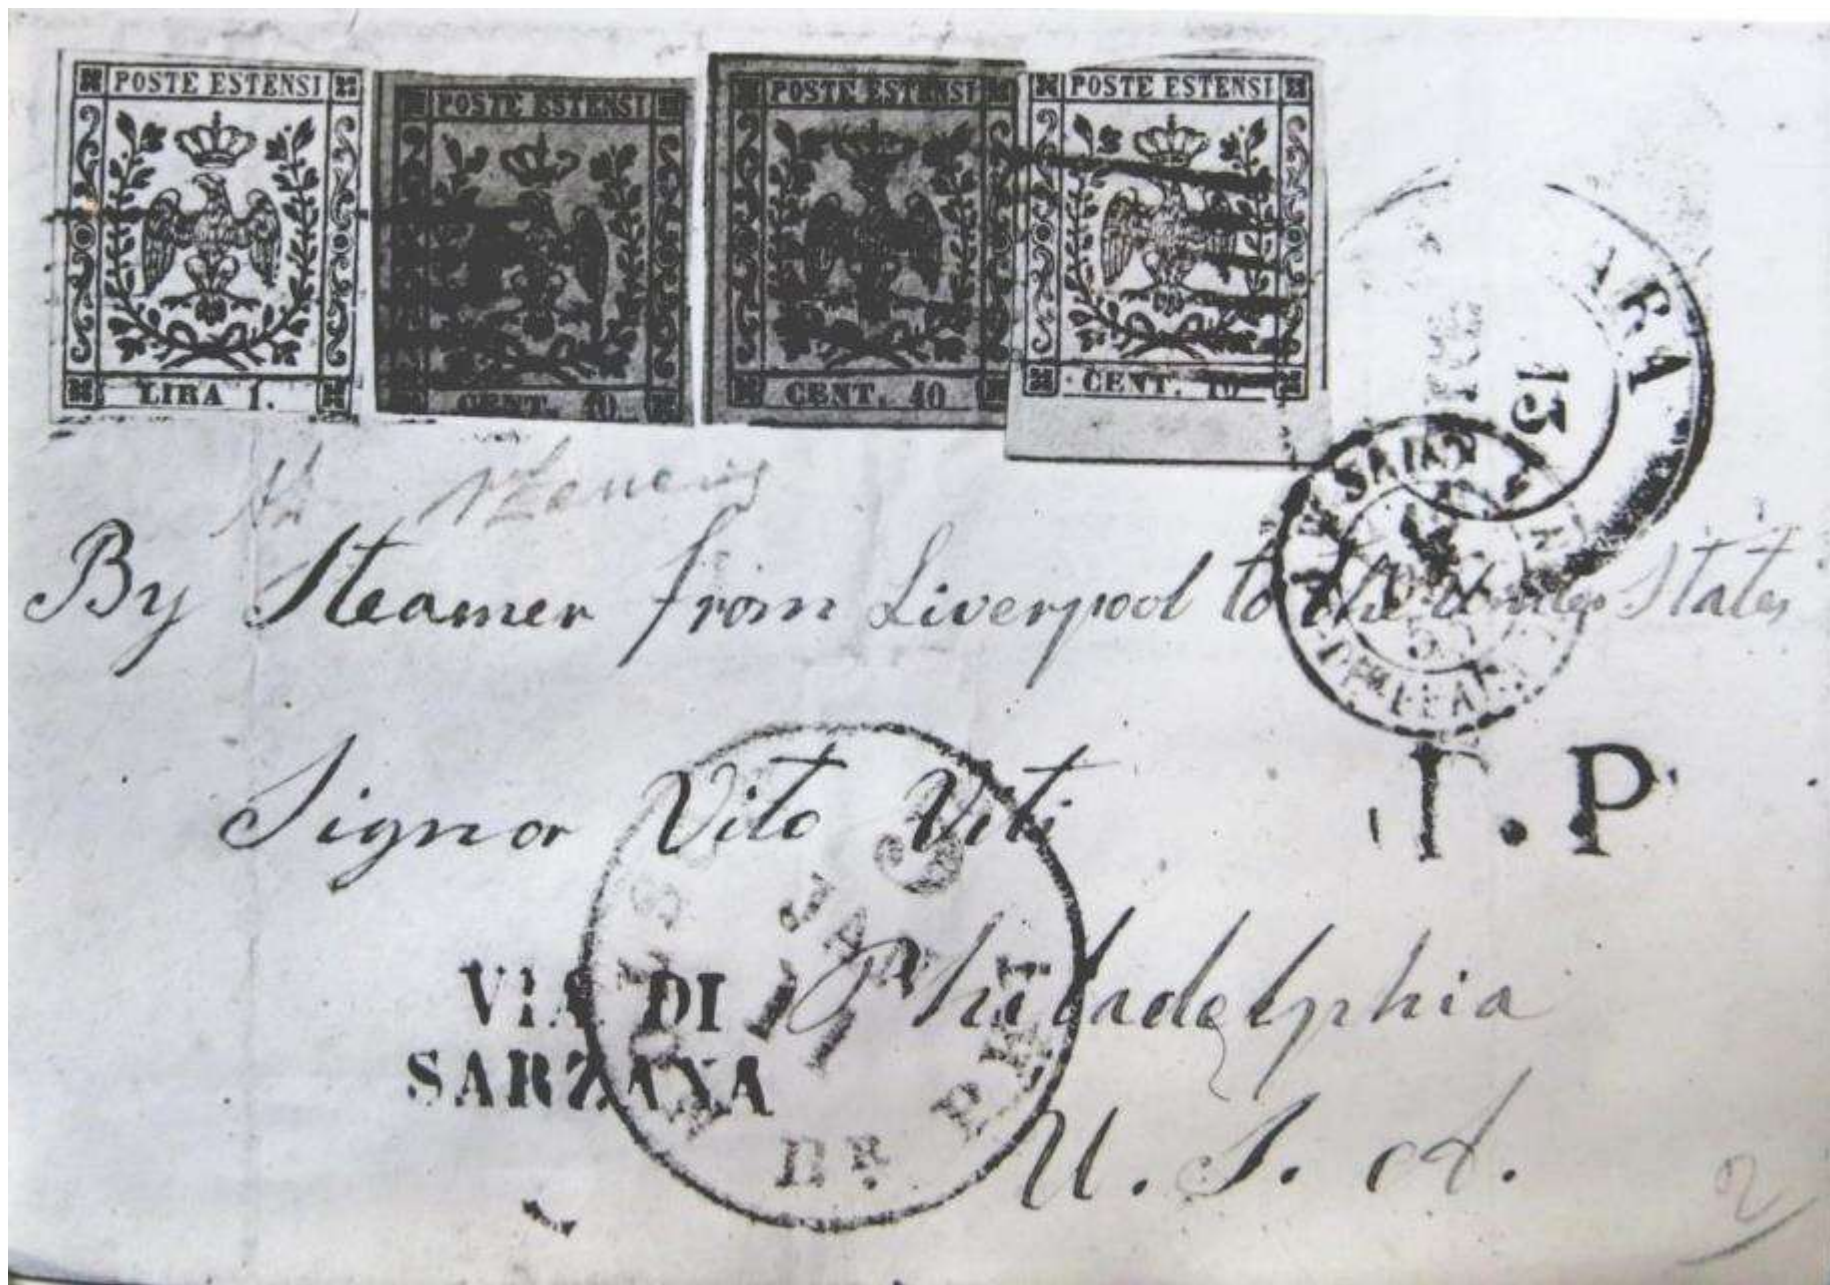 POSTE ESTENSI
LIRA 1.
POSTE ESTENSI
CENT. 40
POSTE ESTENSI
CENT. 40
POSTE ESTENSI
CENT. 10
13
By Steamer from Liverpool to the United States
T.P
Signor Vito Viti
JAN
Philadelphia
VIA DI
SARZANA
U. S. A.
2